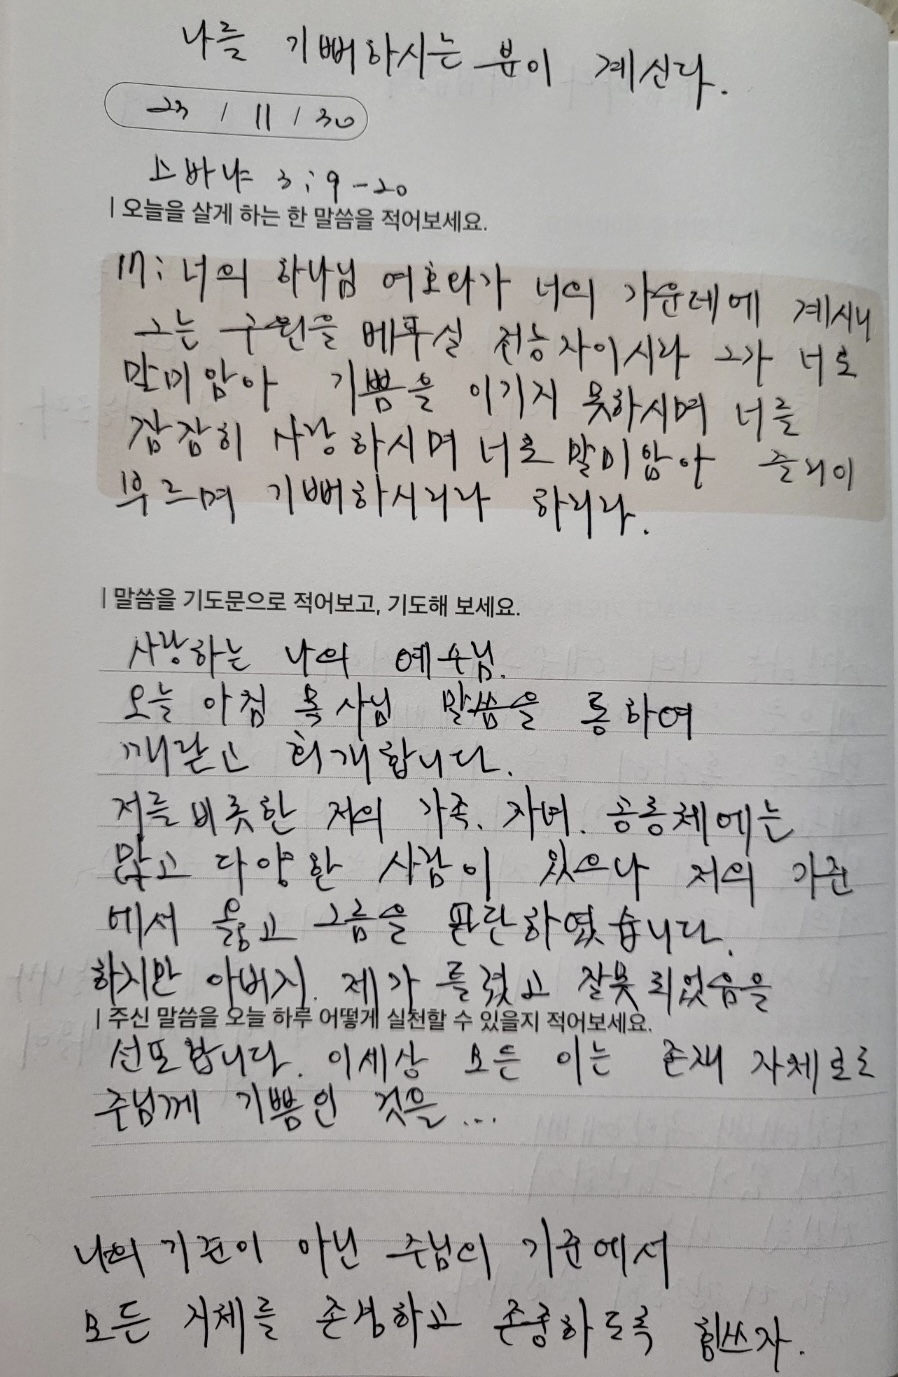 나를 기뻐하시는 분이 계신다.
23 / 11 / 30
스바냐 3:9-20
| 오늘을 살게 하는 한 말씀을 적어보세요.
17: 너의 하나님 여호와가 너의 가운데에 계시니
그는 구원을 베푸실 전능자이시라 그가 너로
말미암아 기쁨을 이기지 못하시며 너를
잠잠히 사랑하시며 너로 말미암아 즐거이
부르며 기뻐하시리라 하리라.
| 말씀을 기도문으로 적어보고, 기도해 보세요.
사랑하는 나의 예수님.
오늘 아침 목사님 말씀을 통하여
깨닫고 회개합니다.
저를 비롯한 저의 가족. 자녀. 공동체에는
많고 다양한 사람이 있으나 저의 기준
에서 옳고 그름을 판단하였습니다.
하지만 아버지. 제가 틀렸고 잘못 되었음을
| 주신 말씀을 오늘 하루 어떻게 실천할 수 있을지 적어보세요.
선포합니다. 이세상 모든 이는 존재 자체로도
주님께 기쁨인 것을...
나의 기준이 아닌 주님의 기준에서
모든 지체를 존경하고 존중하도록 힘쓰자.